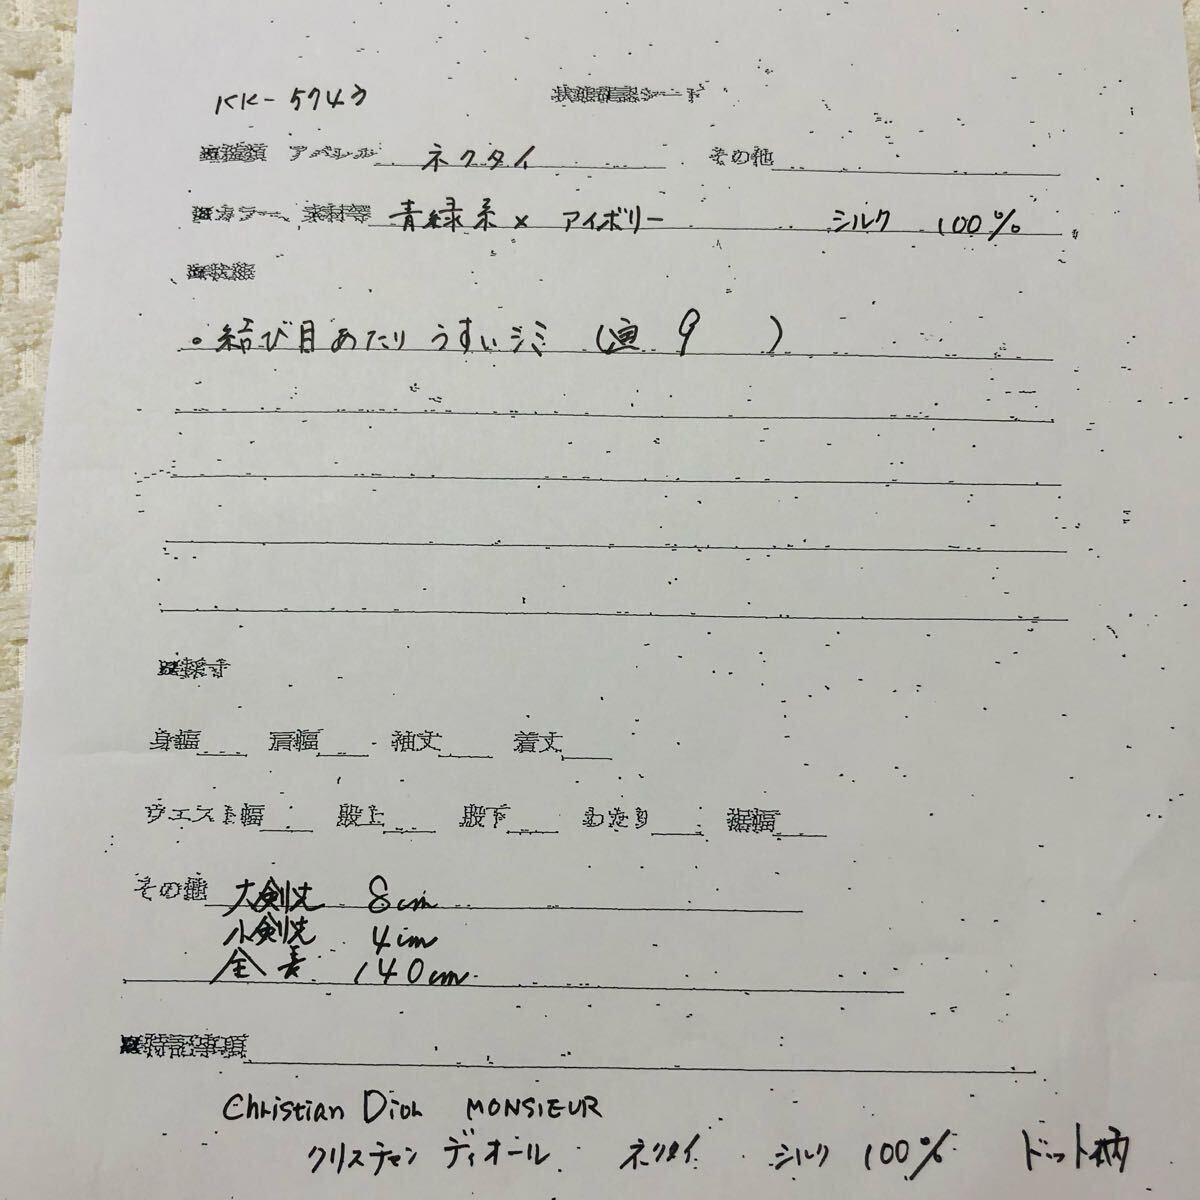 KK-5743 状態確認シート
※種類 アパレル ネクタイ その他
※カラー、素材等 青緑系 × アイボリー シルク 100%
※状態
。結び目あたり うすいシミ ( 9 )
※採寸
身幅 肩幅 袖丈 着丈
ウエスト幅 股上 股下 わたり 裾幅
その他 大剣先 8cm
小剣先 4cm
全長 140cm
※特記事項
Christian Dior MONSIEUR
クリスチャン ディオール ネクタイ シルク 100% ドット柄